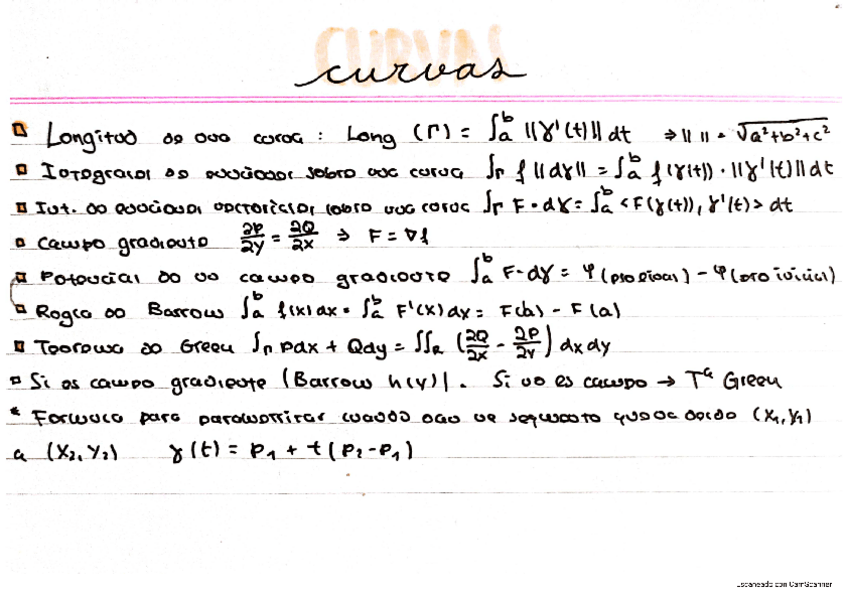 CURVAS
curvas
Longitud de una curva : Long (Γ) = ∫ₐᵇ ||γ'(t)|| dt ⇒ || || = √a²+b²+c²
Integrales de funciones sobre una curva ∫Γ f ||dγ|| = ∫ₐᵇ f(γ(t)) · ||γ'(t)|| dt
Int. de funciones vectoriales sobre una curva ∫Γ F · dγ = ∫ₐᵇ <F(γ(t)), γ'(t)> dt
Campo gradiente ∂P/∂y = ∂Q/∂x ⇒ F = ∇f
Potencial de un campo gradiente ∫ₐᵇ F · dγ = φ(pto final) - φ(pto inicial)
Regla de Barrow ∫ₐᵇ f(x) dx = ∫ₐᵇ F'(x) dx = F(b) - F(a)
Teorema de Green ∫Γ Pdx + Qdy = ∫∫R (∂Q/∂x - ∂P/∂y) dx dy
Si es campo gradiente (Barrow h(y)). Si no es campo → Tª Green
* Formula para parametrizar cuando sea un segmento que va desde (x₁, y₁)
a (x₂, y₂) γ(t) = P₁ + t (P₂ - P₁)
Escaneado con CamScanner